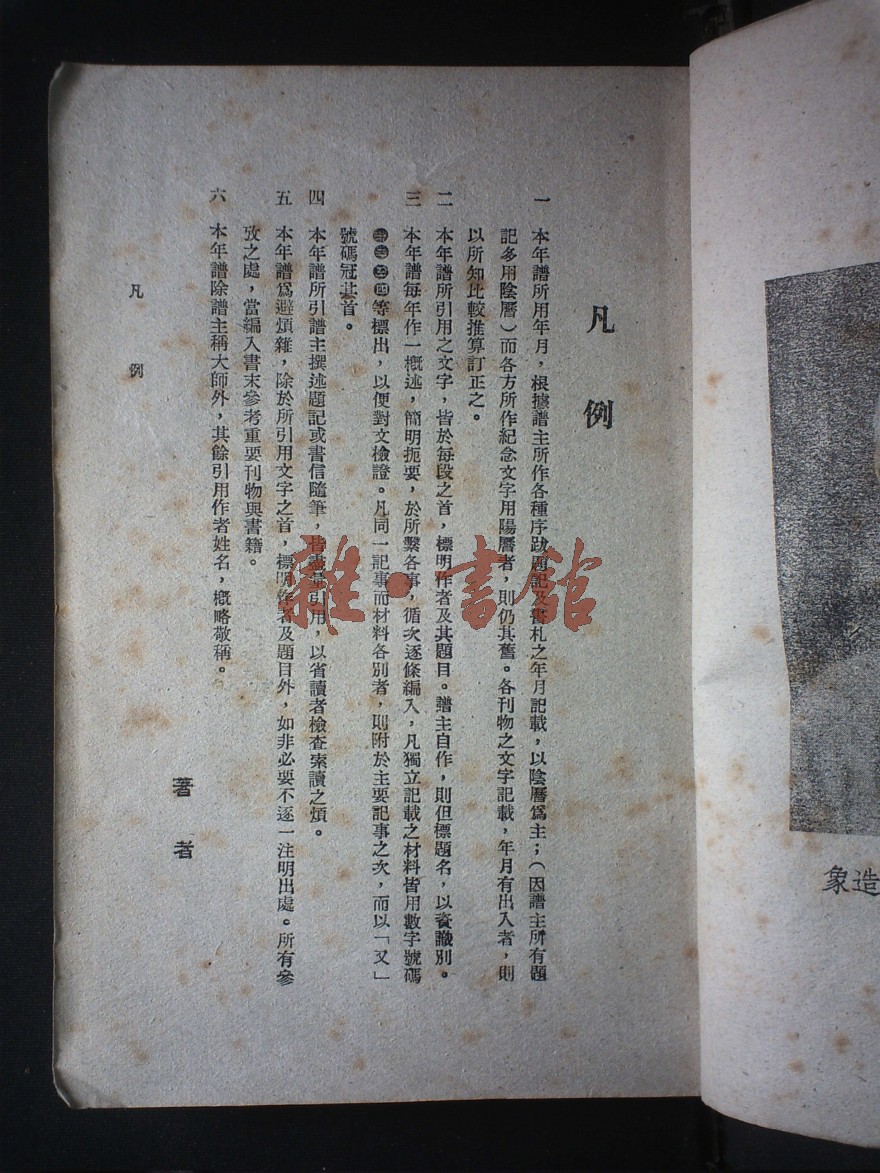 凡例
一 本年譜所用年月，根據譜主所作各種序跋題記及書札之年月記載，以陰曆爲主；（因譜主所有題
記多用陰曆）而各方所作紀念文字用陽曆者，則仍其舊。各刊物之文字記載，年月有出入者，則
以所知比較推算訂正之。
二 本年譜所引用之文字，皆於每段之首，標明作者及其題目。譜主自作，則但標題名，以資識別。
三 本年譜每年作一概述，簡明扼要，於所繫各事，循次逐條編入，凡獨立記載之材料皆用數字號碼
等標出，以便對文檢證。凡同一記事而材料各別者，則附於主要記事之次，而以「又」
號碼冠其首。
四 本年譜所引譜主撰述題記或書信隨筆，皆盡量引用，以省讀者檢查索讀之煩。
五 本年譜爲避煩雜，除於所引用文字之首，標明作者及題目外，如非必要不逐一注明出處。所有參
攷之處，當編入書末參考重要刊物與書籍。
六 本年譜除譜主稱大師外，其餘引用作者姓名，概略敬稱。
著者
凡例
造象
雜·書館